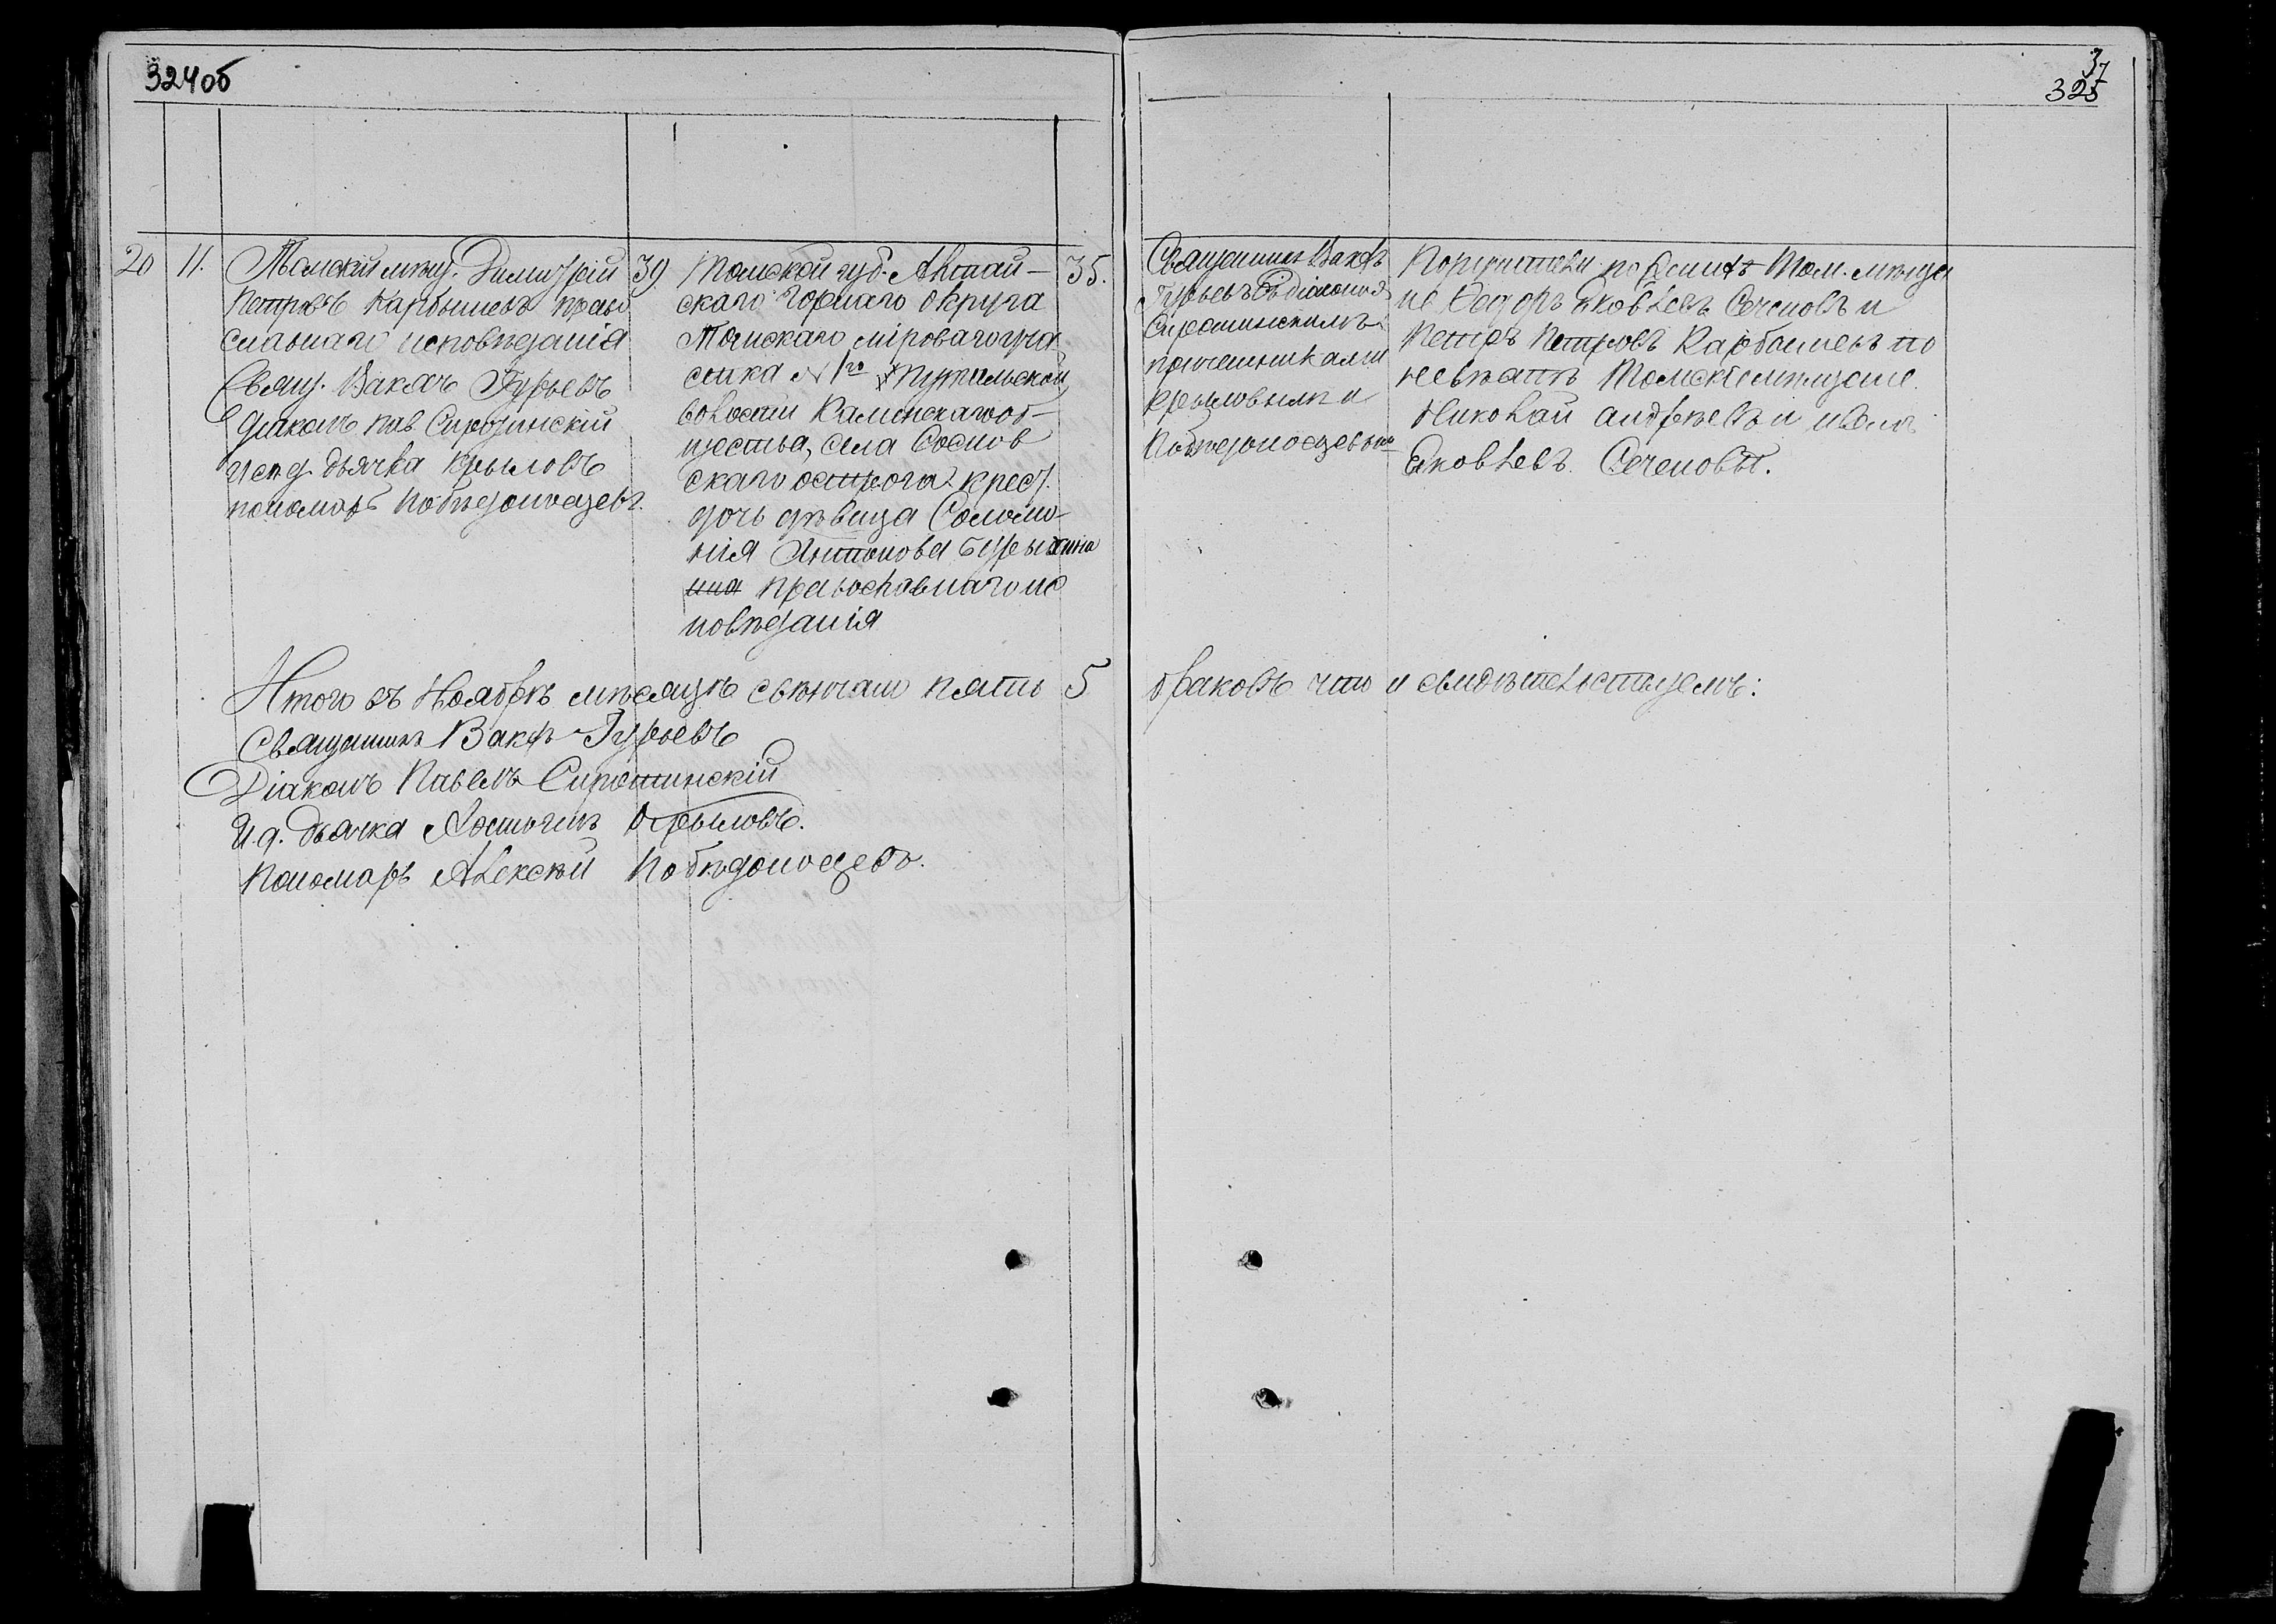 324об
37
325
20 11. Томскій мѣщ. Димитрій 39
Петровъ Карбышевъ право
славнаго исповѣданія
Свящ. Вакхъ Гурьевъ
Діаконъ Пав Сиротинскій
Исп д. дьячка Крыловъ
пономарь Побѣдоносцевъ.
Томской губ. Алтай- 35.
скаго Горнаго округа
Томскаго мироваго уча
стка № 1го
волости Каминскаго об-
щества, села Соснов
скаго острога крест.
дочь дѣвица Соломо-
нія Антонова
ина православнаго ис
повѣданія
Священник Вакхъ
Гурьевъ съ діакономъ
Сиротинскимъ
причетниками
Крыловымъ и
Побѣдоносцевымъ
Поручители по женихѣ Том. мѣща
не Федоръ Яковлевъ Сеченовъ и
Петръ Петровъ Карбышевъ по
невѣстѣ Томскіе мѣщане
Николай Андреевъ и Иванъ
Яковлевъ Сеченовы.
Итого въ Ноябрѣ мѣсяцѣ свѣнчано пять 5 браковъ что и свидѣтельствуемъ:
Священникъ Вакхъ Гурьевъ
Діаконъ Павелъ Сиротинскій
И. д. дьячка Крыловъ.
Пономарь Алексѣй Побѣдоносцевъ.